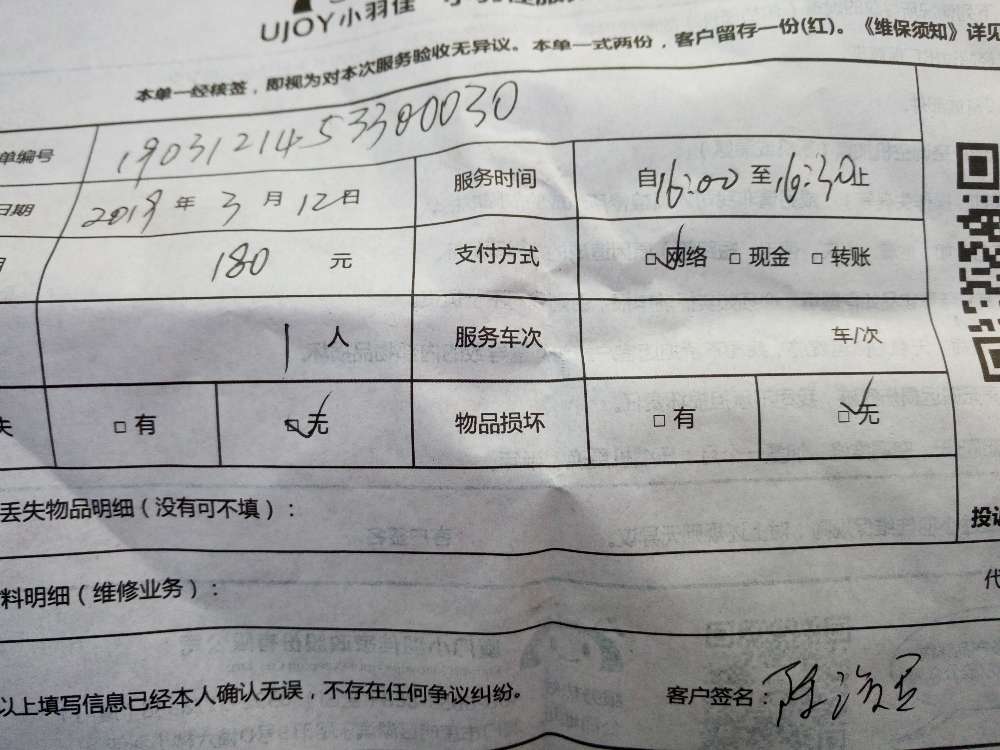 UJOY小羽佳
本单一经核签，即视为对本次服务验收无异议。本单一式两份，客户留存一份(红)。《维保须知》详见
单编号 1903121453300030
日期 2019年3月12日 服务时间 自16:00至16:30止
180元 支付方式 □网络 □现金 □转账
1人 服务车次 车/次
失 □有 □无 物品损坏 □有 □无
丢失物品明细（没有可不填）：
投诉
料明细（维修业务）：
代
以上填写信息已经本人确认无误，不存在任何争议纠纷。 客户签名：